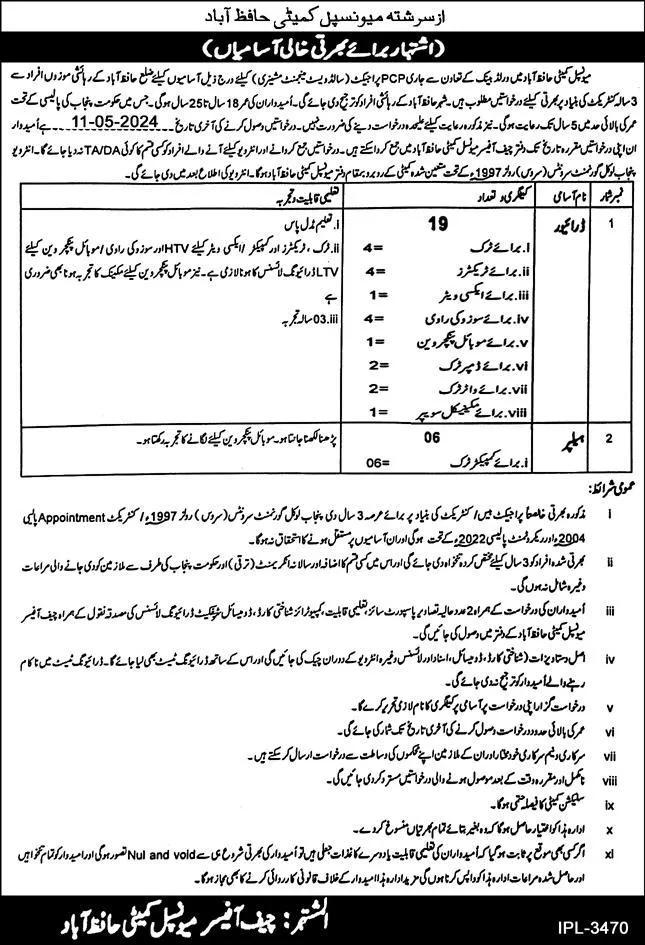 از سرشتہ میونسپل کمیٹی حافظ آباد
(اشتہار برائے بھرتی خالی آسامیاں)
میونسپل کمیٹی حافظ آباد میں ورلڈ بینک کے تعاون سے جاری PCP پراجیکٹ (سالڈ ویسٹ مینجمنٹ مشینری) کیلئے درج ذیل آسامیوں کیلئے ضلع حافظ آباد کے رہائشی موزوں افراد سے
3 سالہ کنٹریکٹ کی بنیاد پر بھرتی کیلئے درخواستیں مطلوب ہیں۔ شہر حافظ آباد کے رہائشی افراد کو ترجیح دی جائے گی۔ اُمیدواران کی عمر 18 سال تا 25 سال ہو گی۔ جس میں حکومت پنجاب کی پالیسی کے تحت
عمر کی بالائی حد میں 5 سال تک رعایت ہو گی۔ نیز مذکورہ رعایت کیلئے علیحدہ درخواست دینے کی ضرورت نہیں۔ درخواستیں وصول کرنے کی آخری تاریخ 11-05-2024 ہے اُمیدوار
ان اپنی درخواستیں مقررہ تاریخ تک دفتر چیف آفیسر میونسپل کمیٹی حافظ آباد میں جمع کروا سکتے ہیں۔ درخواستیں جمع کروانے اور انٹرویو کیلئے آنے والے افراد کو کسی قسم کا کوئی TA/DA نہ دیا جائے گا۔ انٹرویو
پنجاب لوکل گورنمنٹ سرونٹس (سروس) رولز 1997ء کے تحت متعین شدہ کمیٹی کے روبرو بمقام دفتر میونسپل کمیٹی حافظ آباد ہو گا۔ انٹرویو کی اطلاع بعد میں دی جائے گی۔
نمبر شمار نام آسامی کیٹگری و تعداد تعلیمی قابلیت و تجربہ
1 ڈرائیور 19 i. تعلیم مڈل پاس
i. برائے ٹرک =4 ii. ٹرک ، ٹریکٹرز اور کمپیکٹر / ایکسی ویٹر کیلئے HTV اور سوزوکی راوی / موبائل پنکچر وین کیلئے
ii. برائے ٹریکٹرز =4 LTV ڈرائیونگ لائسنس کا ہونا لازمی ہے۔ نیز موبائل پنکچر وین کیلئے مکینک کا تجربہ ہونا بھی ضروری
iii. برائے ایکسی ویٹر =1 ہے
iv. برائے سوزوکی راوی =4 iii. 03 سالہ تجربہ
v. برائے موبائل پنکچر وین =1
vi. برائے ڈمپر ٹرک =2
vii. برائے واٹر ٹرک =2
viii. برائے مکینیکل سویپر =1
2 ہیلپر 06 پڑھنا لکھنا جانتا ہو۔ موبائل پنکچر وین کیلئے لگانے کا تجربہ رکھتا ہو۔
i. برائے کمپیکٹر ٹرک =06
عمومی شرائط:
i مذکورہ بھرتی خالصتاً پراجیکٹ بیس / کنٹریکٹ کی بنیاد پر برائے عرصہ 3 سال دی پنجاب لوکل گورنمنٹ سرونٹس (سروس) رولز 1997ء / کنٹریکٹ Appointment پالیسی
2004ء اور ریکروٹمنٹ پالیسی 2022ء کے تحت ہو گی اور ان آسامیوں پر مستقل ہونے کا استحقاق نہ ہو گا۔
ii بھرتی شدہ افراد کو 3 سال کیلئے مختص کردہ تنخواہ دی جائے گی اور اس میں کسی قسم کا اضافہ اور سالانہ انکریمنٹ (ترقی) اور حکومت پنجاب کی طرف سے ملازمین کو دی جانے والی مراعات
وغیرہ شامل نہ ہوں گی۔
iii اُمیدواران کی درخواست کے ہمراہ 2 عدد حالیہ تصاویر پاسپورٹ سائز، تعلیمی قابلیت، کمپیوٹرائز شناختی کارڈ، ڈومیسائل سرٹیفکیٹ ڈرائیونگ لائسنس کی مصدقہ نقول کے ہمراہ چیف آفیسر
میونسپل کمیٹی حافظ آباد کے دفتر میں وصول کی جائیں گی۔
iv اصل دستاویزات (شناختی کارڈ، ڈومیسائل، اسناد اور لائسنس وغیرہ انٹرویو کے دوران چیک کی جائیں گی اور اس کے ساتھ ڈرائیونگ ٹیسٹ بھی لیا جائے گا۔ ڈرائیونگ ٹیسٹ میں ناکام
رہنے والے اُمیدوار کو ترجیح نہ دی جائے گی۔
v درخواست گزار اپنی درخواست پر آسامی پر کیٹگری کا نام لازمی تحریر کرے گا۔
vi عمر کی بالائی حدود درخواست وصول کرنے کی آخری تاریخ تک شمار کی جائے گی۔
vii سرکاری و نیم سرکاری خود مختار اداروں کے ملازمین اپنے محکموں کی وساطت سے درخواست ارسال کر سکتے ہیں۔
viii نامکمل اور مقررہ وقت کے بعد موصول ہونے والی درخواستیں مسترد کر دی جائیں گی۔
ix سلیکشن کمیٹی کا فیصلہ حتمی ہو گا۔
x ادارہ ہذا کو اختیار حاصل ہو گا کہ وہ بغیر بتائے تمام بھرتیاں منسوخ کر دے۔
xi اگر کسی بھی موقع پر ثابت ہو گیا کہ اُمیدواران کی تعلیمی قابلیت یا دوسرے کاغذات جعلی ہیں تو اُمیدوار کی بھرتی شروع ہی سے Nul and void تصور ہو گی اور امیدوار کو تمام تنخواہیں
اور حاصل شدہ مراعات ادارہ ہذا کو واپس کرنا ہوں گی مزید ادارہ ہذا امیدوار کے خلاف قانونی کارروائی کرنے کا بھی مجاز ہو گا۔
المشتہر: چیف آفیسر میونسپل کمیٹی حافظ آباد
IPL-3470